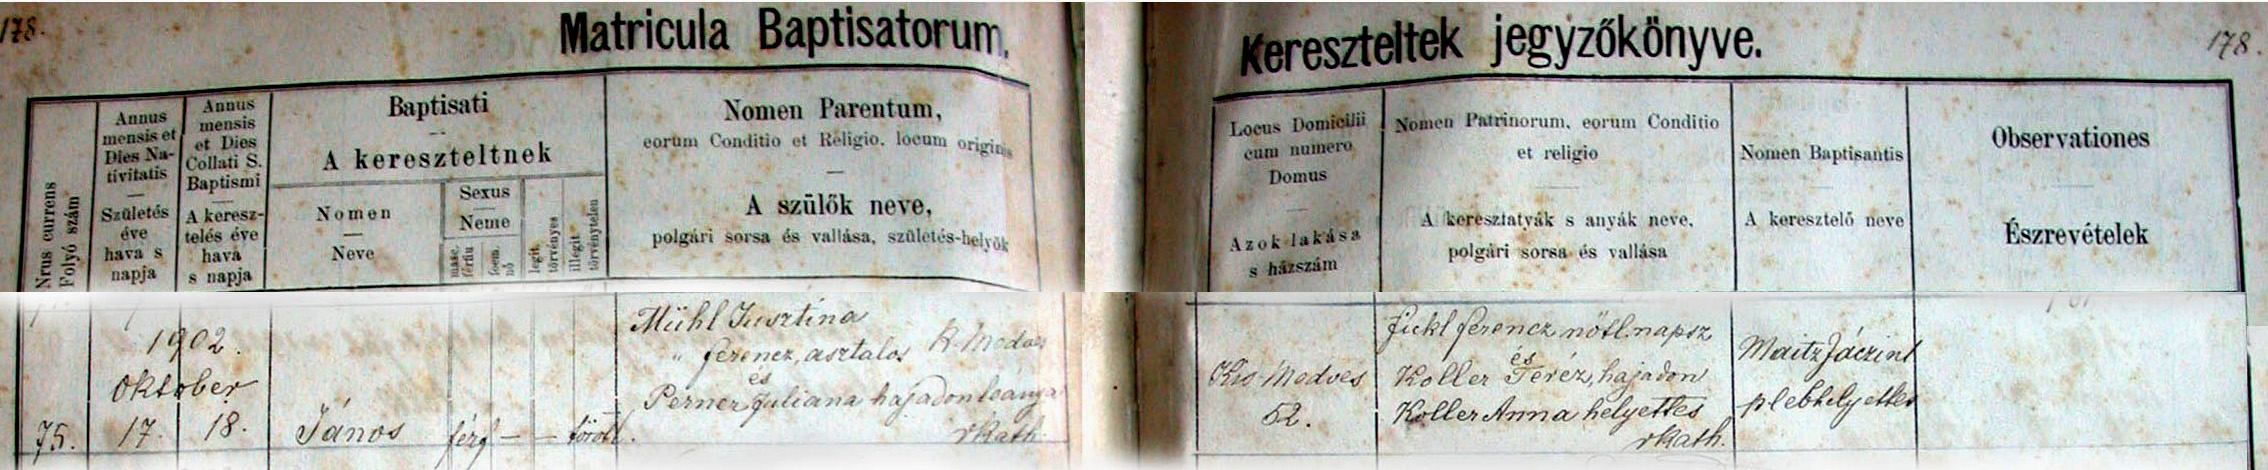 178.
Matricula Baptisatorum.
Nrus currens
Folyó szám
Annus
mensis et
Dies Na-
tivitatis
Születés
éve
hava s
napja
Annus
mensis
et Dies
Collati S.
Baptismi
A keresz-
telés éve
hava
s napja
Baptisati
A kereszteltnek
Nomen
Neve
Sexus
Neme
masc.
férfiu
foem.
nő
legit.
törvényes
illegit.
törvénytelen
Nomen Parentum,
eorum Conditio et Religio, locum originis
A szülők neve,
polgári sorsa és vallása, születés-helyök
75.
1902.
Oktober
17. 18.
János
férf — —
Mühl Jusztina
" ferencz, asztalos K-Medves
és
Perner Juliana hajadon leánya
rkath.
Kereszteltek jegyzőkönyve.
178
Locus Domicilii
cum numero
Domus
Azok lakása
s házszám
Nomen Patrinorum, eorum Conditio
et religio
A keresztatyák s anyák neve,
polgári sorsa és vallása
Nomen Baptisantis
A keresztelő neve
Observationes
Észrevételek
Kis-Medves
52.
ferencz nőtl. napsz
és
Koller Teréz, hajadon
Koller Anna helyettes
rkath.
Maitz Jáczint
plebhelyettes